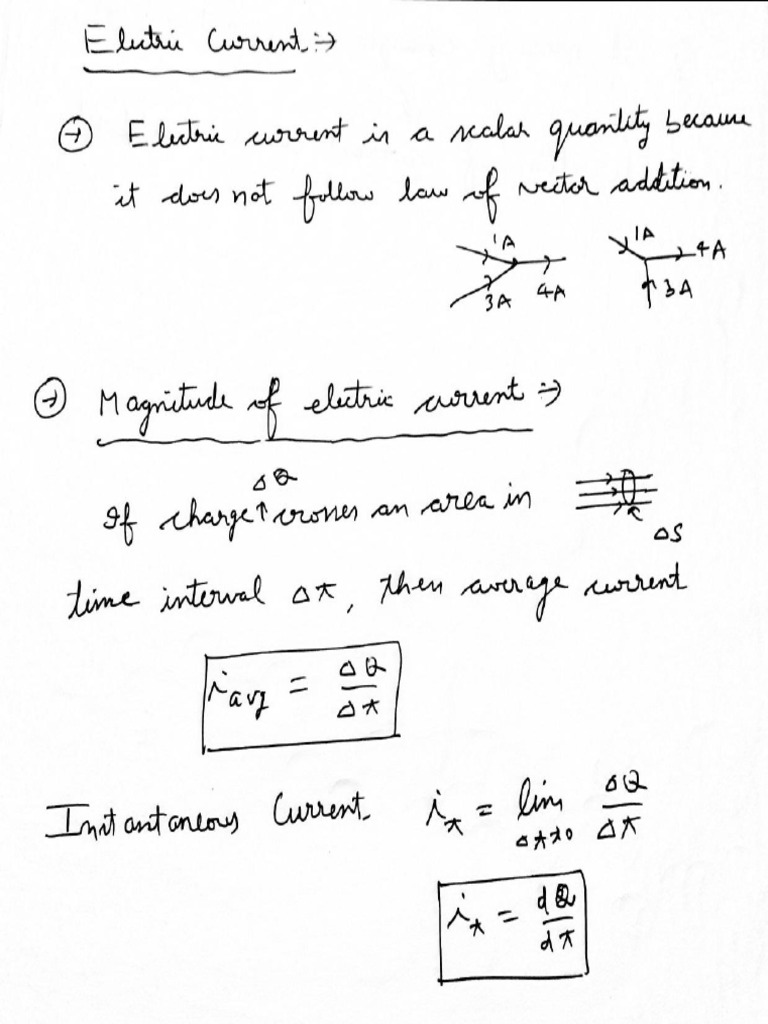 Electric Current :→
→ Electric current is a scalar quantity because
it does not follow law of vector addition.
1A 3A 4A 1A 4A 3A
→ Magnitude of electric current :→
If charge ΔQ crosses an area in ΔS
time interval Δt, then average current
i_avg = ΔQ/Δt
Instantaneous Current i_t = lim Δt→0 ΔQ/Δt
i_t = dQ/dt